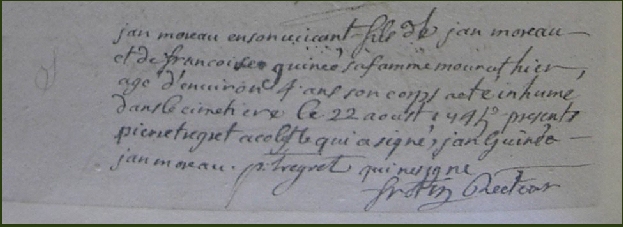 jan moreau en son vivant fils de jan moreau
et de francoise guineé sa famme mourut hier
age d'environ 4 ans son corps a ete inhumé
dans le cimetiere le 22 aoust presents
pierre tregret acolyte qui a signé, jan Guinée
jan moreau. p. tregret qui ne signe
Recteur